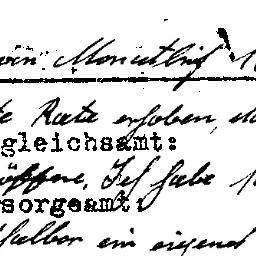 von Monatlich
te Rate erhoben, d
gleichsamt:
öffne, Ich habe
sorgeamt:
halber ein eigenes